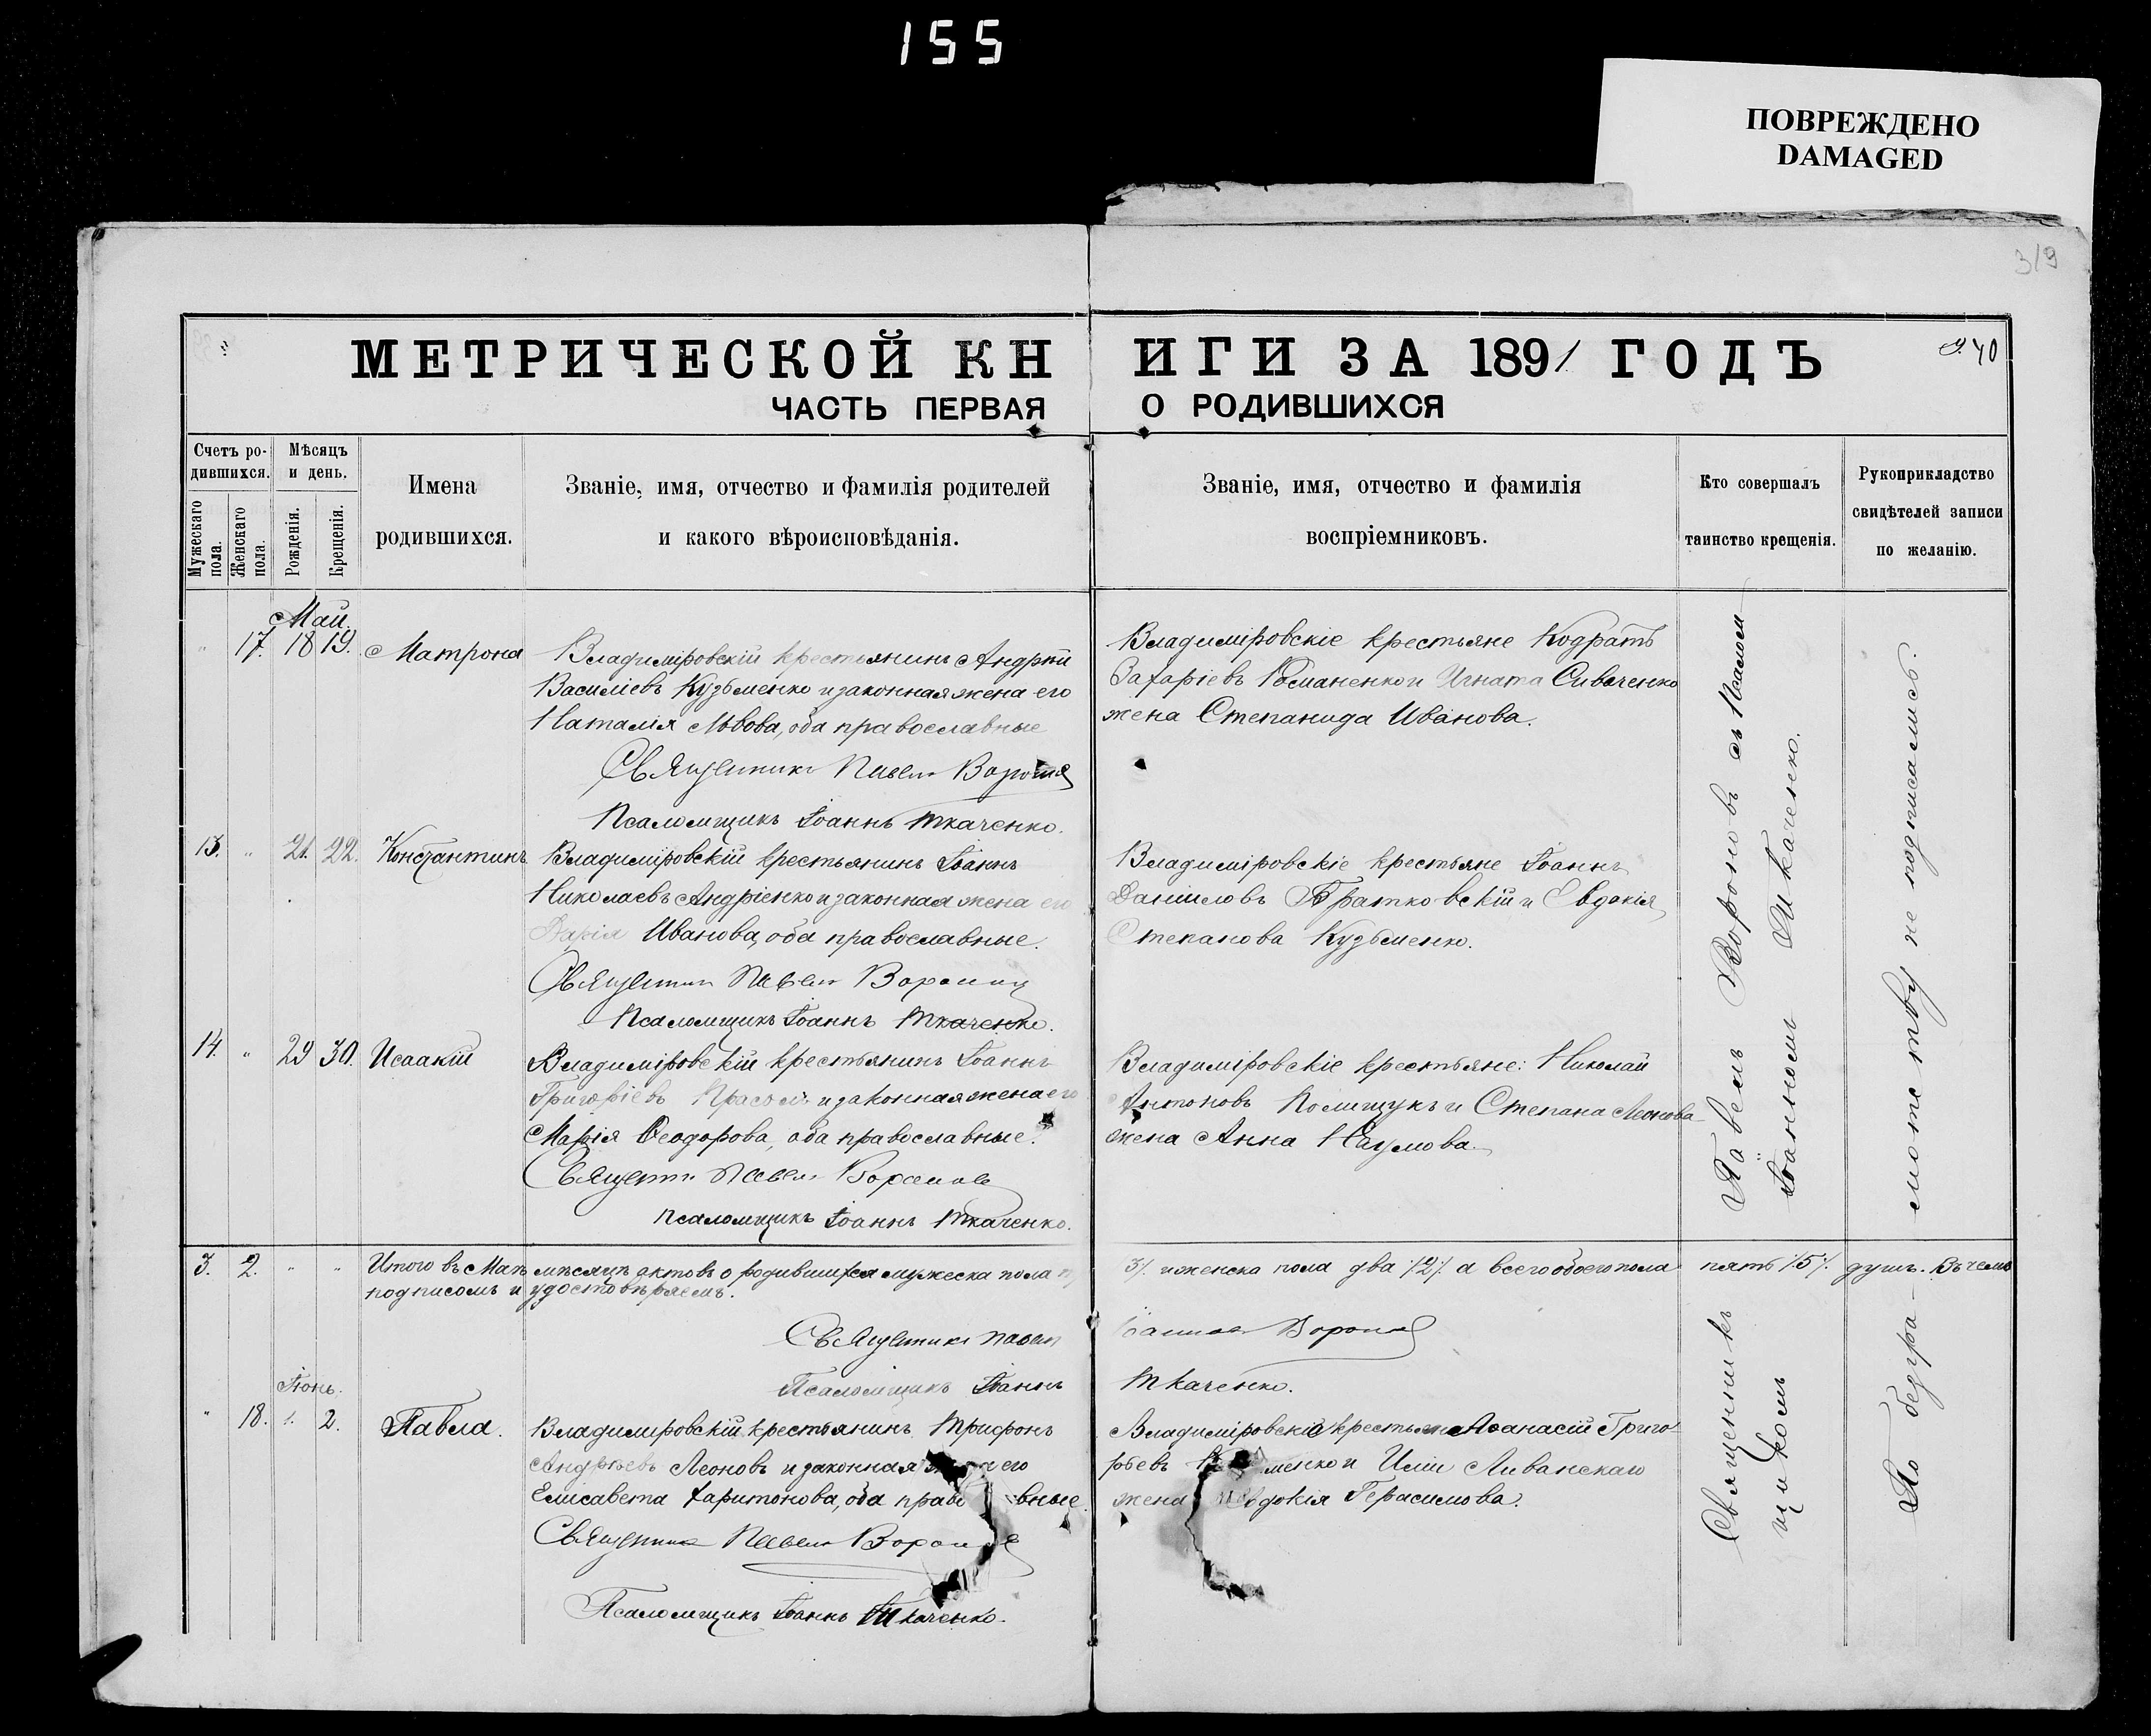 155
ПОВРЕЖДЕНО
DAMAGED
319
МЕТРИЧЕСКОЙ КНИГИ ЗА 1891 ГОДЪ
40
ЧАСТЬ ПЕРВАЯ О РОДИВШИХСЯ
Счетъ родившихся.
Мужескаго пола.
Женскаго пола.
Мѣсяцъ и день.
Рожденія.
Крещенія.
Имена
родившихся.
Званіе, имя, отчество и фамилія родителей
и какого вѣроисповѣданія.
Званіе, имя, отчество и фамилія
воспріемниковъ.
Кто совершалъ
таинство крещенія.
Рукоприкладство
свидѣтелей записи
по желанію.
Май.
" 17. 18 19. Матрона
Владиміровскій крестьянинъ Андрей
Василіевъ Кузьменко и законная жена его
Наталія Львова, оба православные
Священникъ Павелъ Вороновъ
Псаломщикъ Іоаннъ Ткаченко.
Владиміровскіе крестьяне Кодратъ
Захаріевъ Романенко и Игната Сиваченко
жена Степанида Иванова.
13. " 21. 22. Константинъ
Владиміровскій крестьянинъ Іоаннъ
Николаевъ Андріенко и законная жена его
Дарія Иванова, оба православные.
Священник Павелъ Вороновъ
Псаломщикъ Іоаннъ Ткаченко.
Владиміровскіе крестьяне Іоаннъ
Даніиловъ Братковскій и Евдокія
Степанова Кузьменко.
14. " 29 30. Исаакій
Владиміровскій крестьянинъ Іоаннъ
Григоріевъ и законная жена его
Марія Ѳеодорова, оба православные.
Священ. Павелъ Вороновъ
Псаломщикъ Іоаннъ Ткаченко.
Владиміровскіе крестьяне: Николай
Антоновъ Полищукъ и Степана Леонова
жена Анна Наумова.
3. 2. " " Итого въ Маѣ мѣсяцѣ актовъ о родившихся мужеска пола 3/. и женска пола два /2/. а всего обоего пола пять /5/. душъ. Въ чемъ
подписомъ и удостовѣряемъ.
Священникъ Павелъ Вороновъ
Псаломщикъ Іоаннъ Ткаченко.
Іюнь.
" 18. 1. 2. Павла.
Владиміровскій крестьянинъ Трифонъ
Андреевъ Леоновъ и законная его
Елисавета Харитонова, оба вные
Священникъ Павелъ Вороновъ
Псаломщикъ Іоаннъ Ткаченко.
Владиміровскіе крестьяне Аѳанасій Григо-
рьевъ менко и Иліи Ливанскаго
жена Евдокія Герасимова.
Священникъ Павелъ Вороновъ съ Псалом-
щикомъ Іоанномъ Ткаченко.
По безграмотству не подписались.